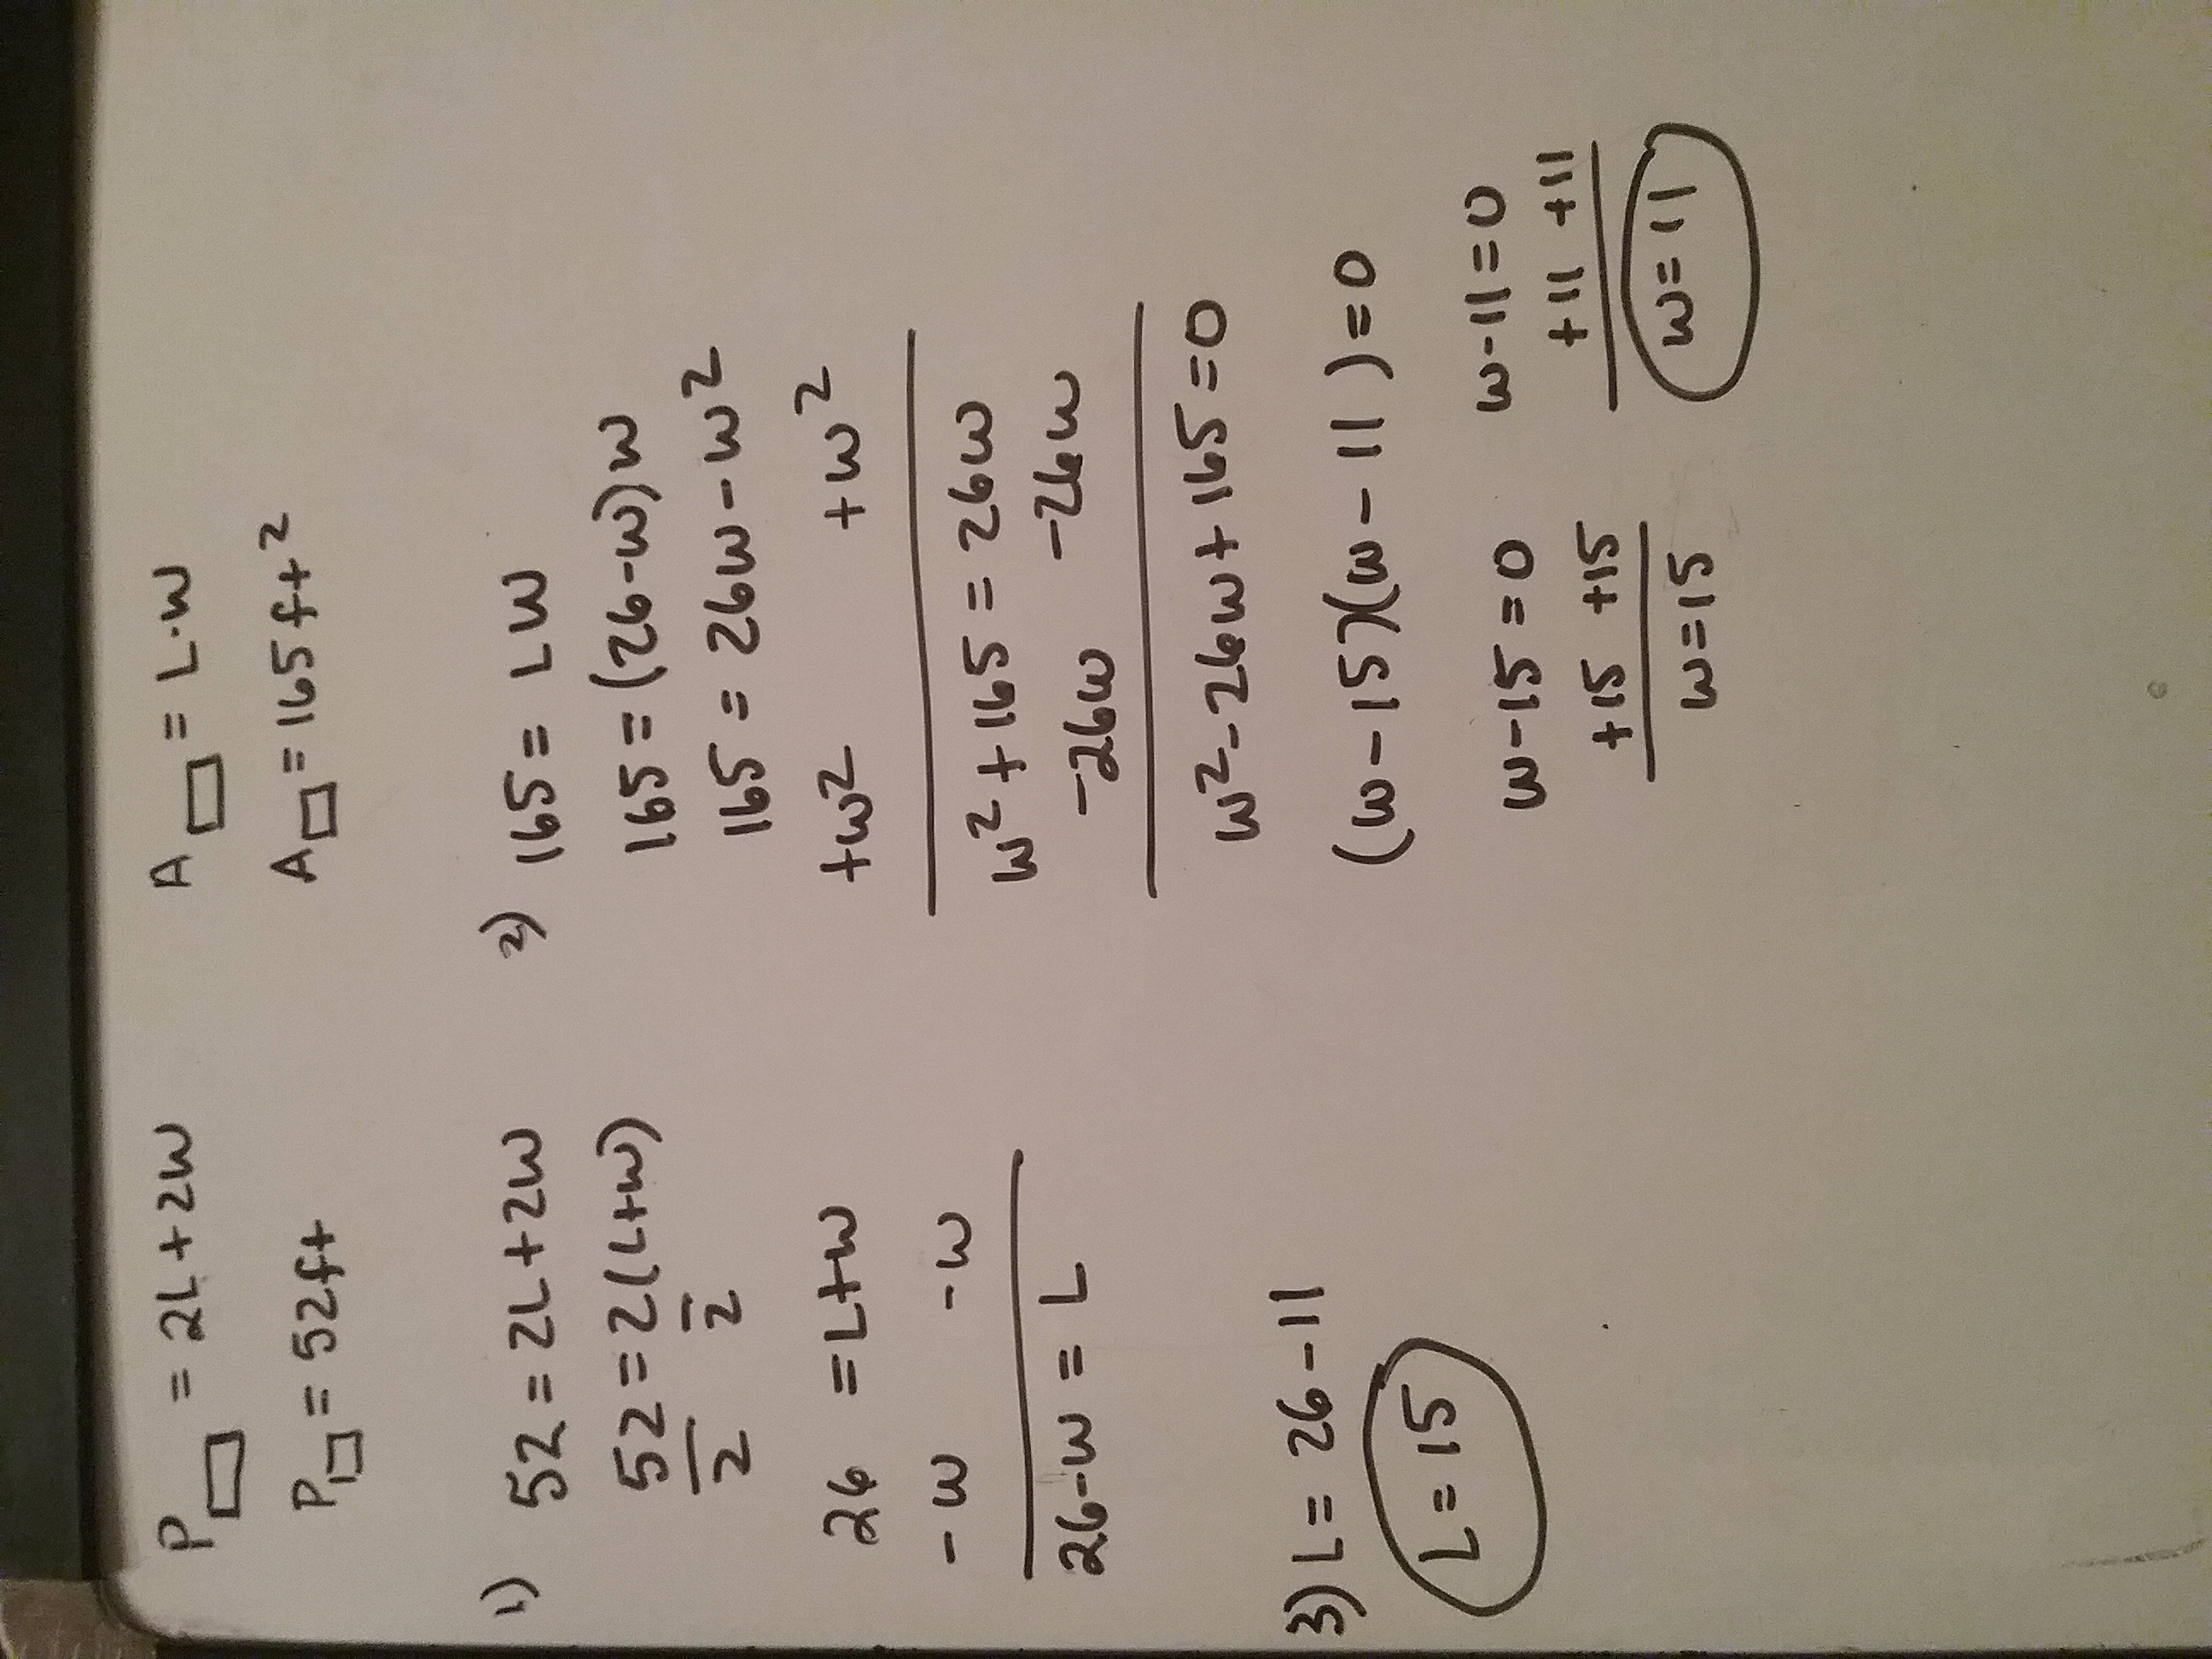 P▭ = 2L+2W
P▭ = 52ft
A▭ = L·W
A▭ = 165ft²
1) 52 = 2L+2W
52 = 2(L+W)
2 2
26 = L+W
-W -W
26-W = L
2) 165 = LW
165 = (26-W)W
165 = 26W-W²
+W² +W²
W²+165 = 26W
-26W -26W
W²-26W+165=0
(W-15)(W-11)=0
W-15=0
+15 +15
W=15
W-11=0
+11 +11
W=11
3) L = 26-11
L=15